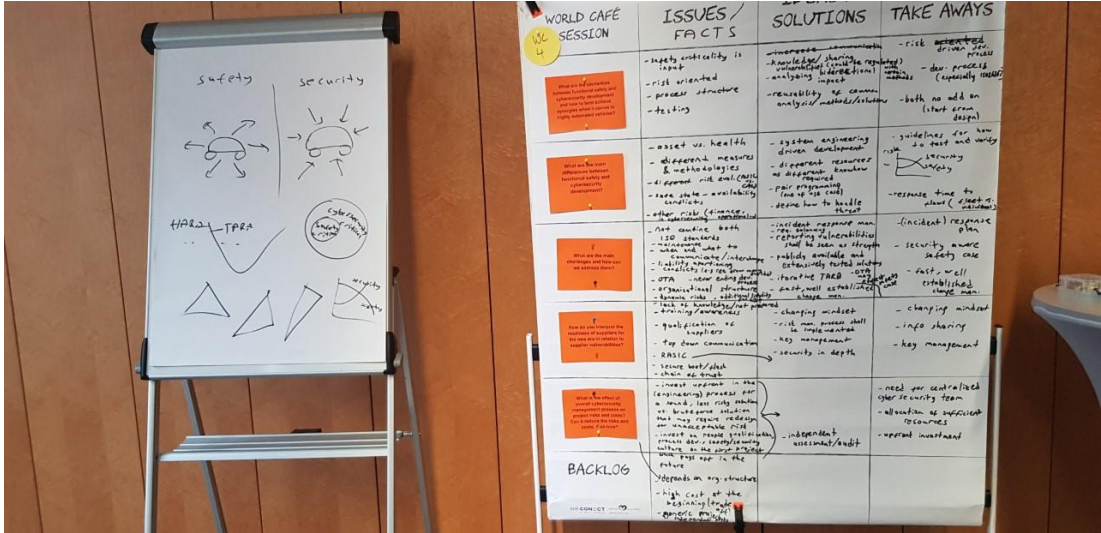 safety
security
HARA
TARA
cybersecurity
safety
security
safety
WORLD CAFÉ
SESSION
WC
4
ISSUES/
FACTS
SOLUTIONS
TAKE AWAYS
What are the similarities
between functional safety and
cybersecurity development
and how to best achieve
synergies when it comes to
highly automated vehicles?
- safety criticality is
input
- risk oriented
- process structure
- testing
- knowledge/sharing
- analyzing bidirectional
impact
- reusability of common
analysis/methods/solutions
- risk oriented
driven dev.
process
- dev. process
- both no add on
(start from
design)
What are the main
differences between
functional safety and
cybersecurity
development?
- asset vs. health
- different measures
& methodologies
- different risk eval.
- safe state – availability
conflicts
- other risks (finance,
- system engineering
driven development
- different resources
as different knowhow
required
- pair programming
- define how to handle
threat
- guidelines for how
to test and verify
risk
security
safety
- response time to
What are the main
challenges and how can
we address them?
- not confine both
ISO standards
- maintenance
- when and what to
communicate/interchange
- liability aportioning
- OTA - never ending dev.
process
- organisational structure
- dynamic risks
- incident response man.
- reporting vulnerabilities
shall be seen as strength
- publicly available and
extensively tested solutions
- iterative TARA
- fast, well established
change man.
- (incident) response
plan
- security aware
safety case
- fast, well
established
change man.
How do you interpret the
readiness of suppliers for
the new era in relation to
supplier vulnerabilities?
- lack of knowledge/not prepared
- training/awareness
- qualification of
suppliers
- top down communication
- RASIC
- secure boot/flash
- chain of trust
- changing mindset
- risk man. process shall
be implemented
- key management
- security in depth
- changing mindset
- info sharing
- key management
What is the effect of
overall cybersecurity
management process on
project risks and costs?
Can it reduce the risks and
costs. Can how?
- invest upfront in the
(engineering) process for
a sound, less risky solution
vs. bruteforce solution
that may require redesign
for unacceptable risk
- invest on people qualification,
process dev. & safety/security
culture on the first project
pays off in the
future
- independent
assesment/audit
- need for centralized
cyber security team
- allocation of sufficient
resources
- upfront investment
BACKLOG
- depends on org. structure
- high cost at the
beginning (trade
off)
- generic project